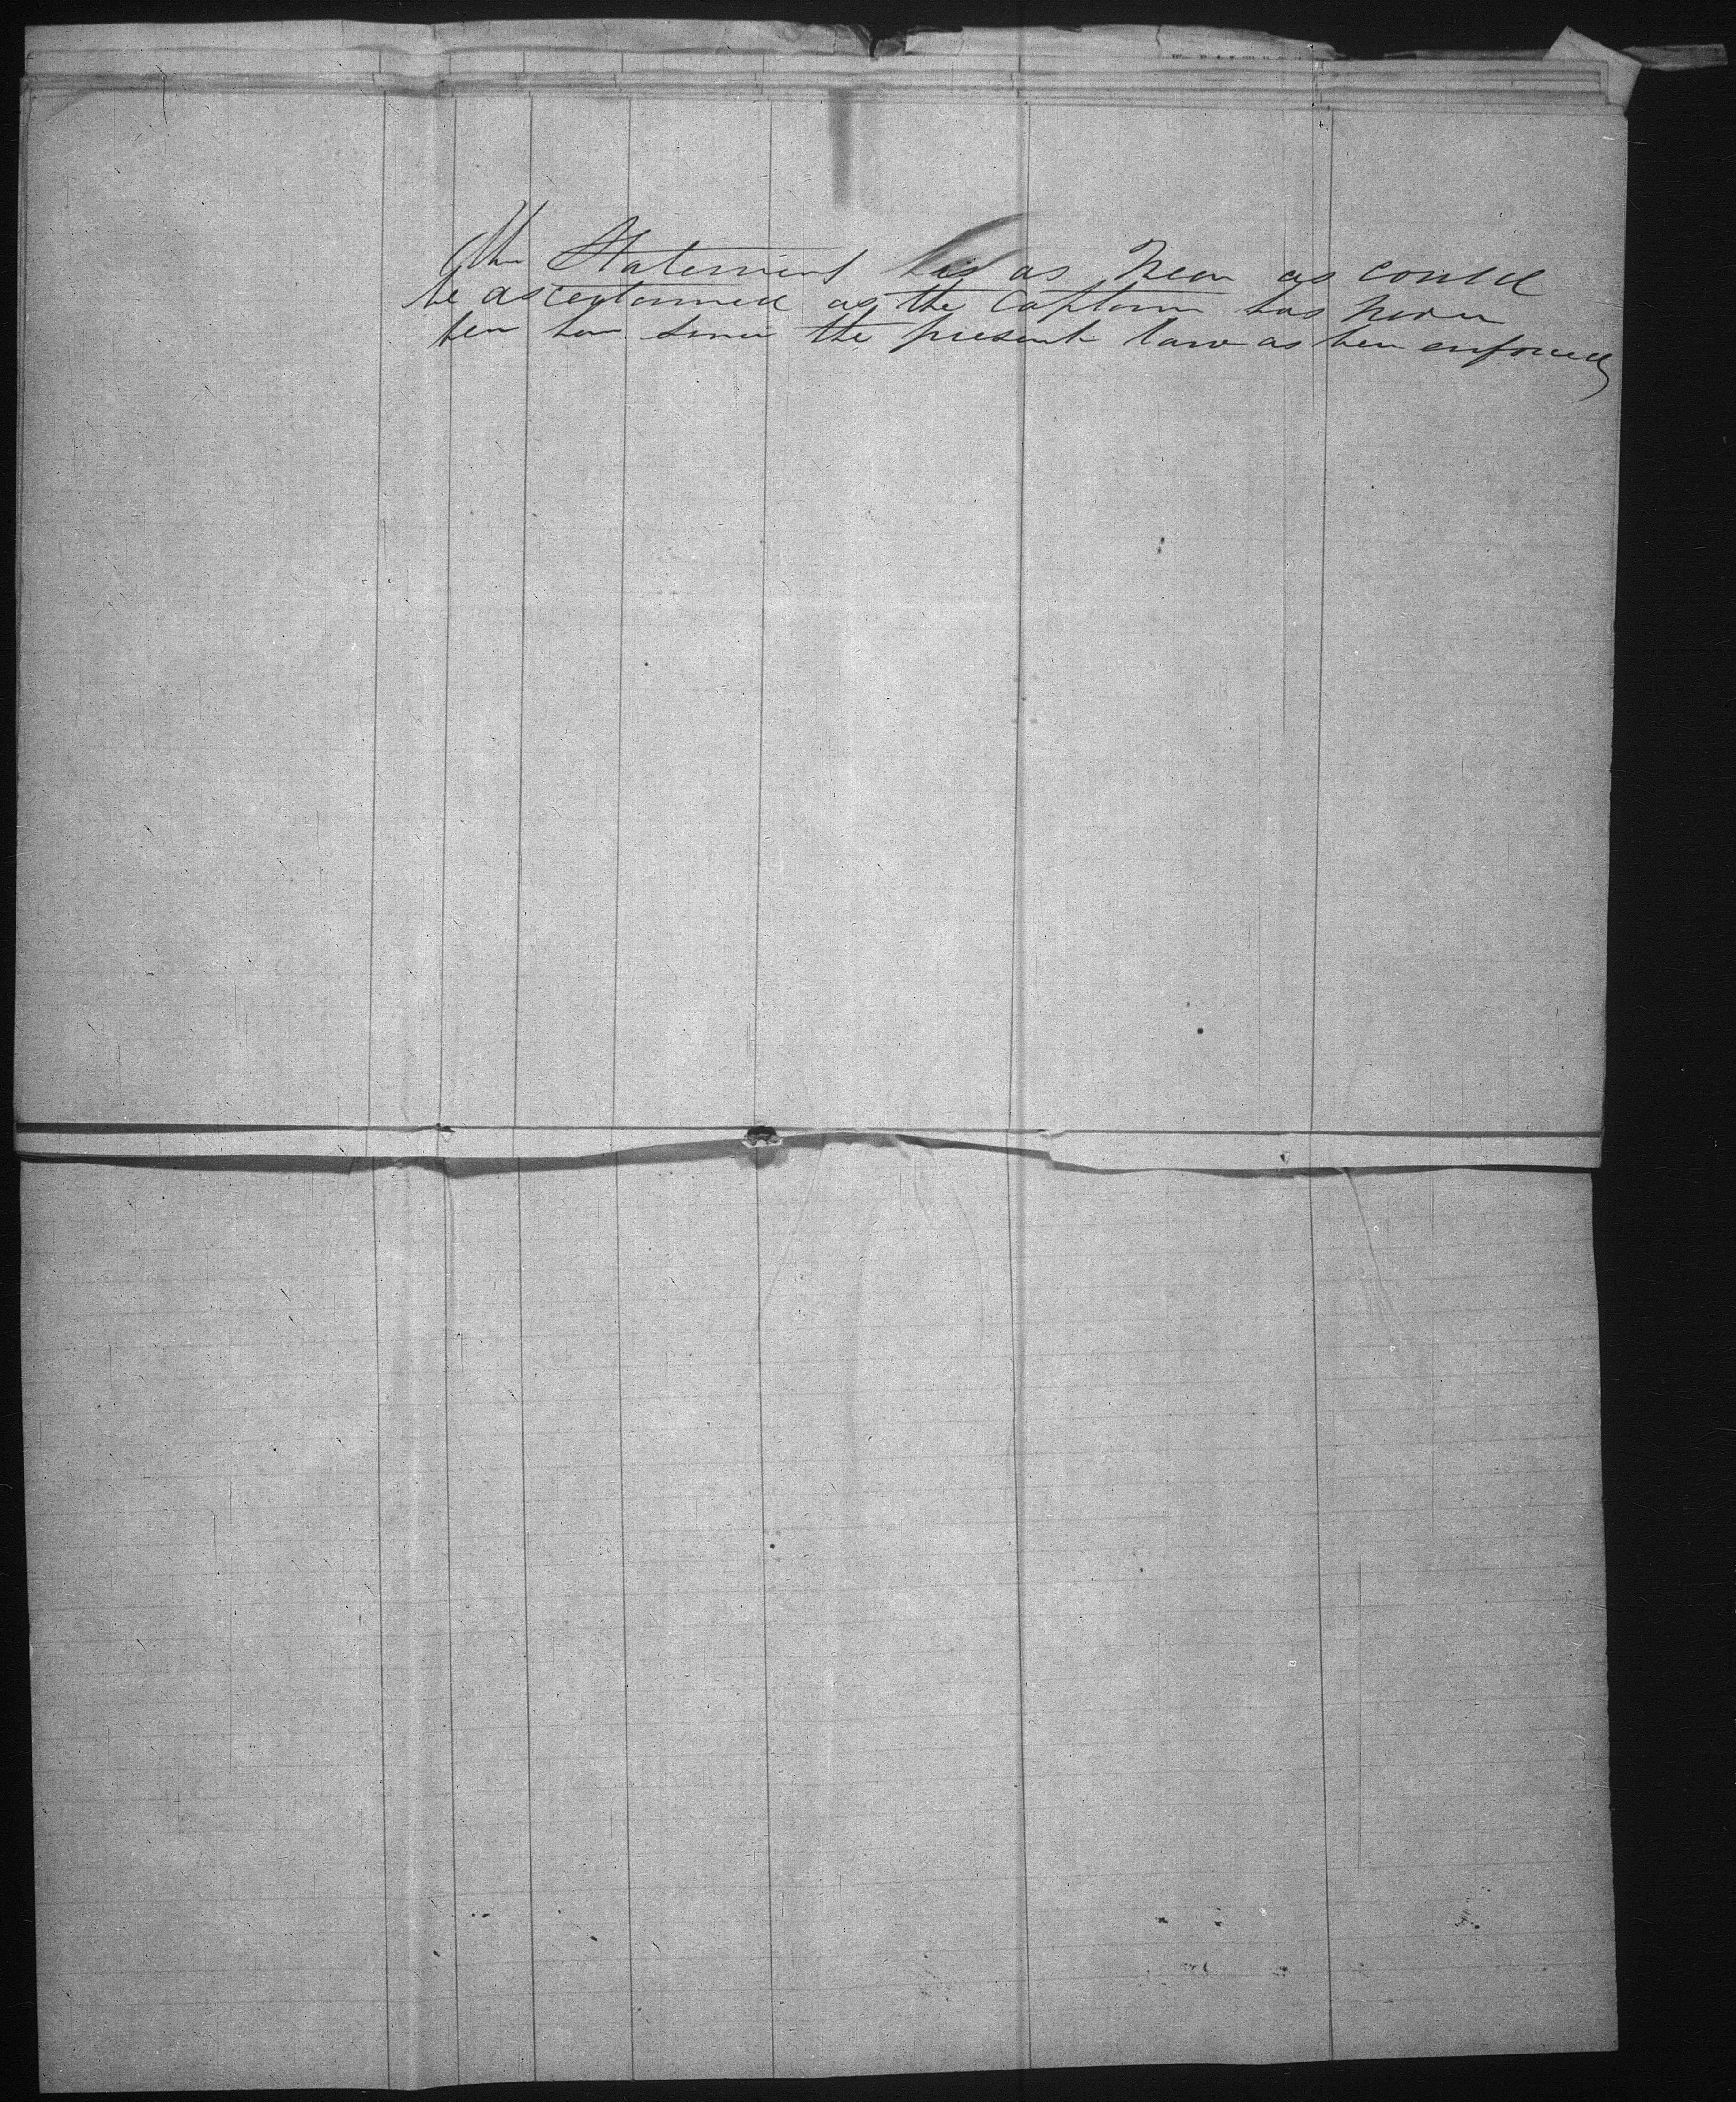 The Statement is as Near as could
be ascertained as the Captain has never
ben here since the present law as ben enforced